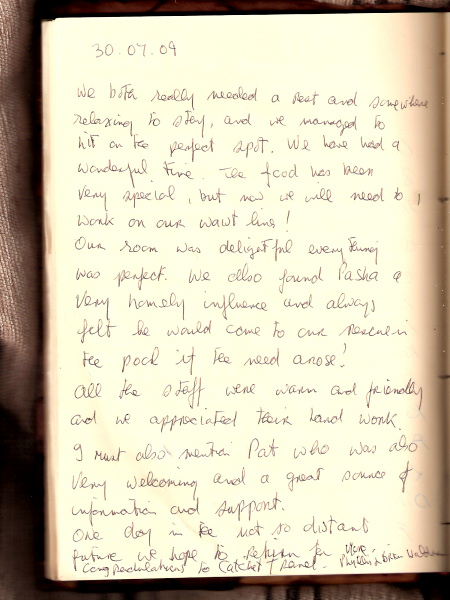 30.07.09
We both really needed a rest and somewhere
relaxing to stay, and we managed to
hit on the perfect spot. We have had a
wonderful time. The food has been
very special, but now we will need to
work on our waist line!
Our room was delightful everything
was perfect. We also found Pasha a
very homely influence and always
felt he would come to our rescue in
the pool if the need arose!
All the staff were warm and friendly
and we appreciated their hard work.
I must also mention Pat who was also
very welcoming and a great source of
information and support.
One day in the not so distant
future we hope to return for more.
Congratulations to Catchet Travel. Phyllis & Brian